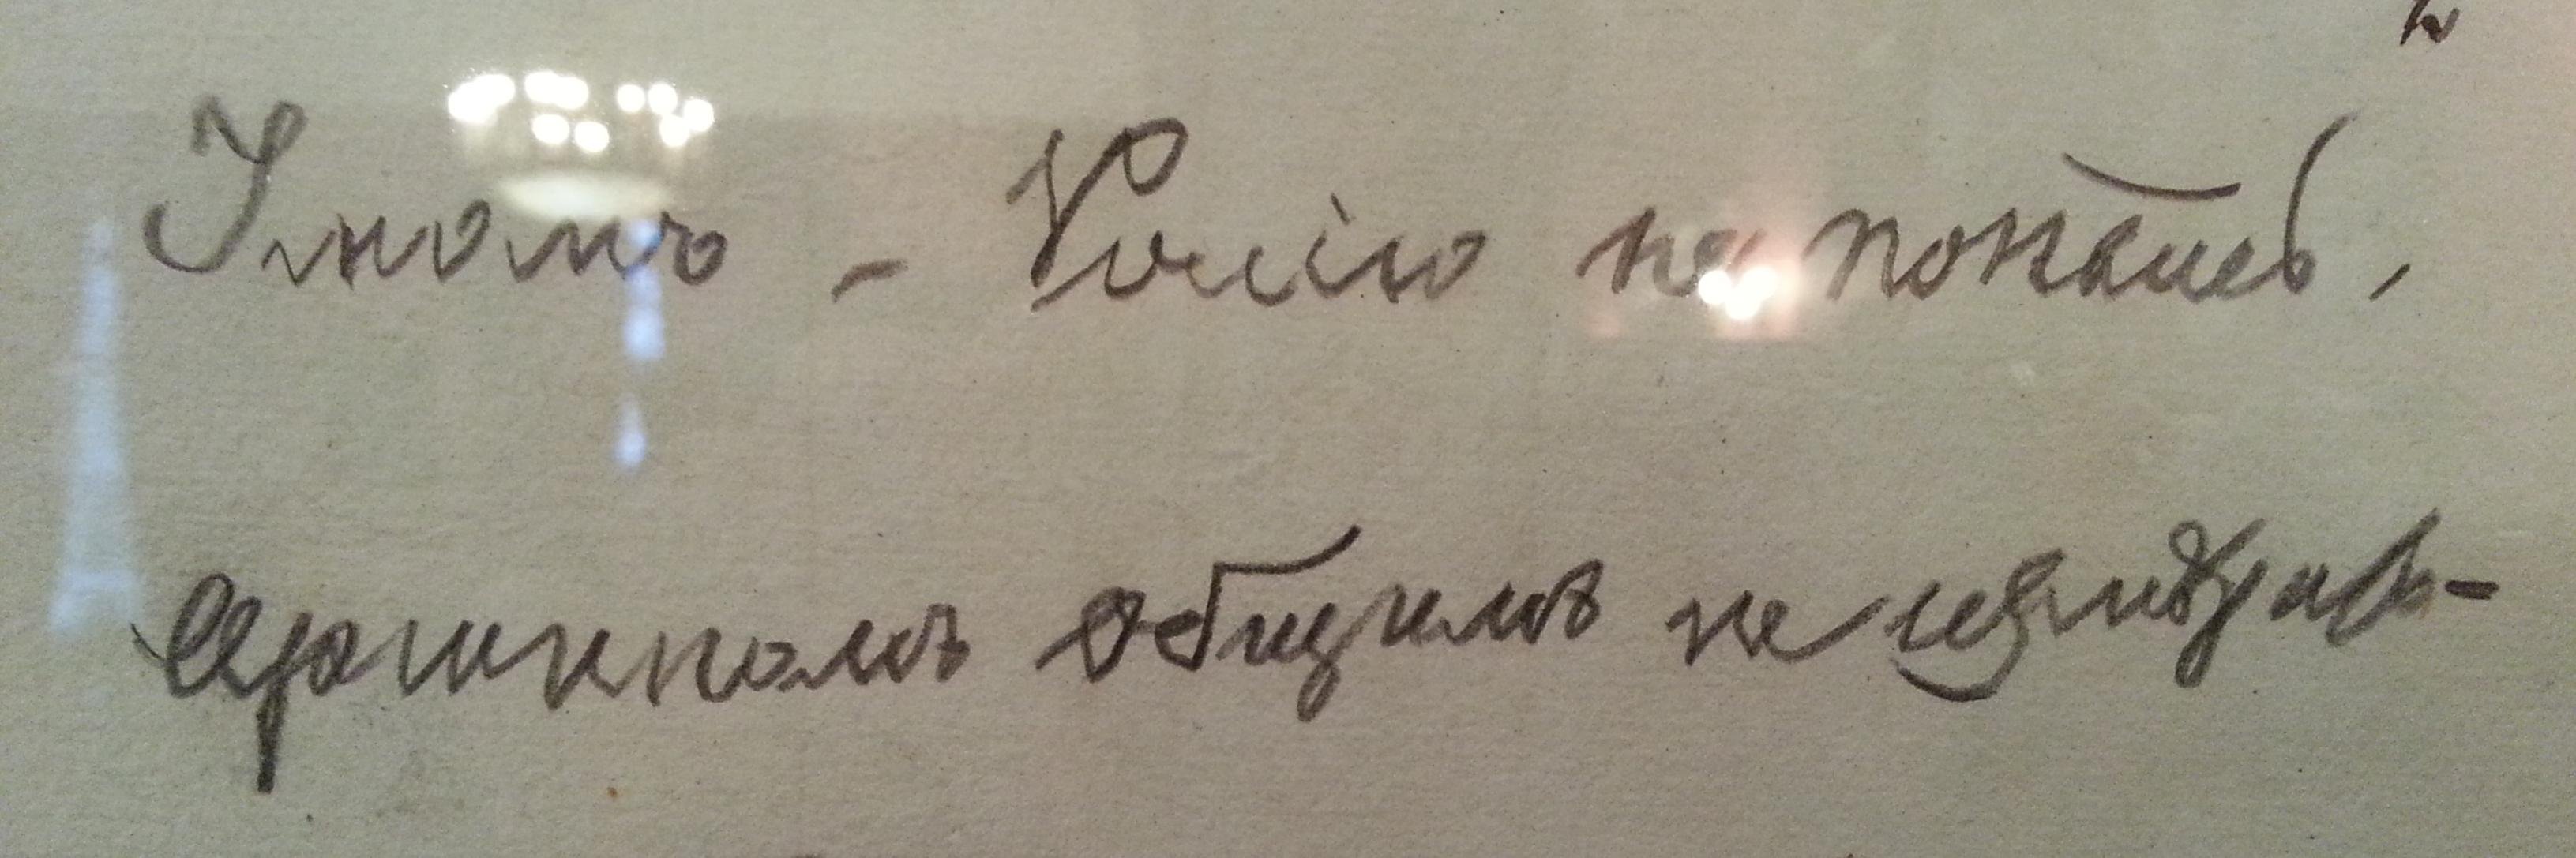 Умомъ - Россiю не понять,
Аршиномъ общимъ не измѣрить -